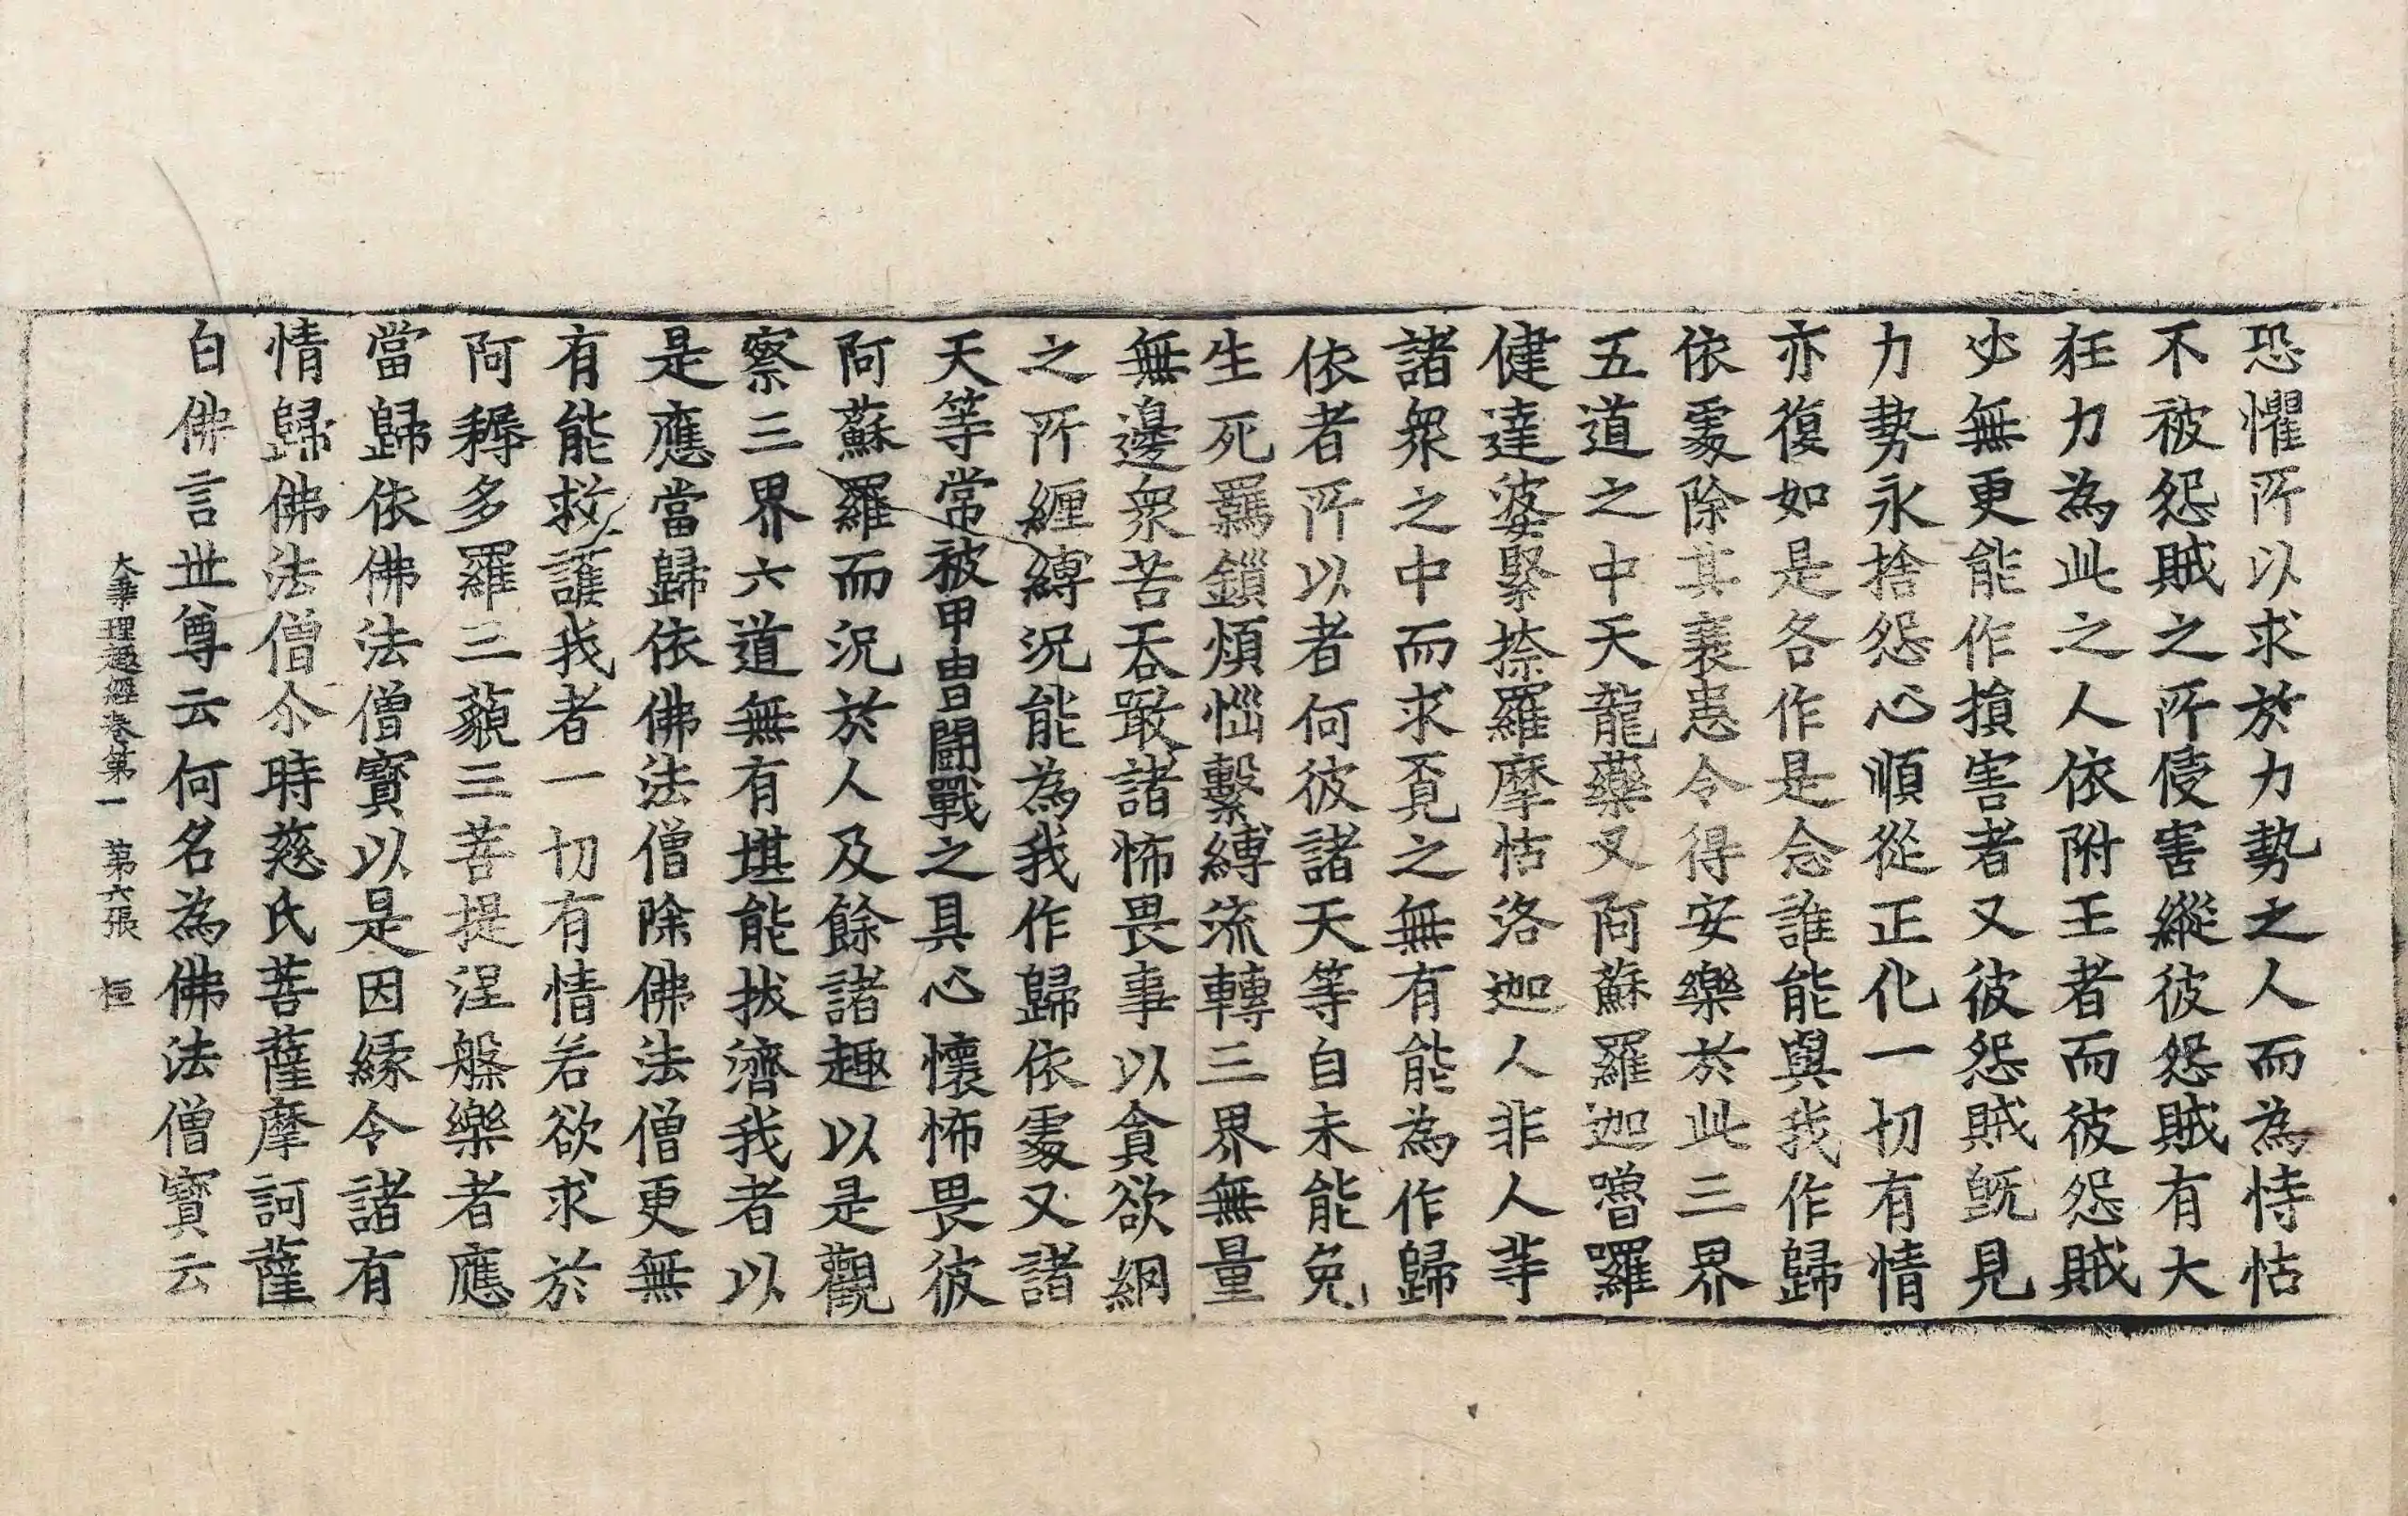 恐懼所以求於力勢之人而為恃怙
不被怨賊之所侵害縱彼怨賊有大
狂力為此之人依附王者而彼怨賊
必無更能作損害者又彼怨賊既見
力勢永捨怨心順從正化一切有情
亦復如是各作是念誰能與我作歸
依處除其衰患令得安樂於此三界
五道之中天龍藥叉阿蘇羅迦嚕羅
健達婆緊捺羅摩怙洛迦人非人等
諸衆之中而求覔之無有能為作歸
依者所以者何彼諸天等自未能免
生死羈鎖煩惱繫縛流轉三界無量
無邊衆苦吞噉諸怖畏事以貪欲網
之所纏縛況能為我作歸依處又諸
天等常被甲冑鬪戰之具心懷怖畏彼
阿蘇羅而況於人及餘諸趣以是觀
察三界六道無有堪能拔濟我者以
是應當歸依佛法僧除佛法僧更無
有能救護我者一切有情若欲求於
阿耨多羅三藐三菩提涅槃樂者應
當歸依佛法僧寶以是因緣令諸有
情歸佛法僧尒時慈氏菩薩摩訶薩
白佛言世尊云何名為佛法僧寶云
大乘理趣經卷第一 第六張 恒